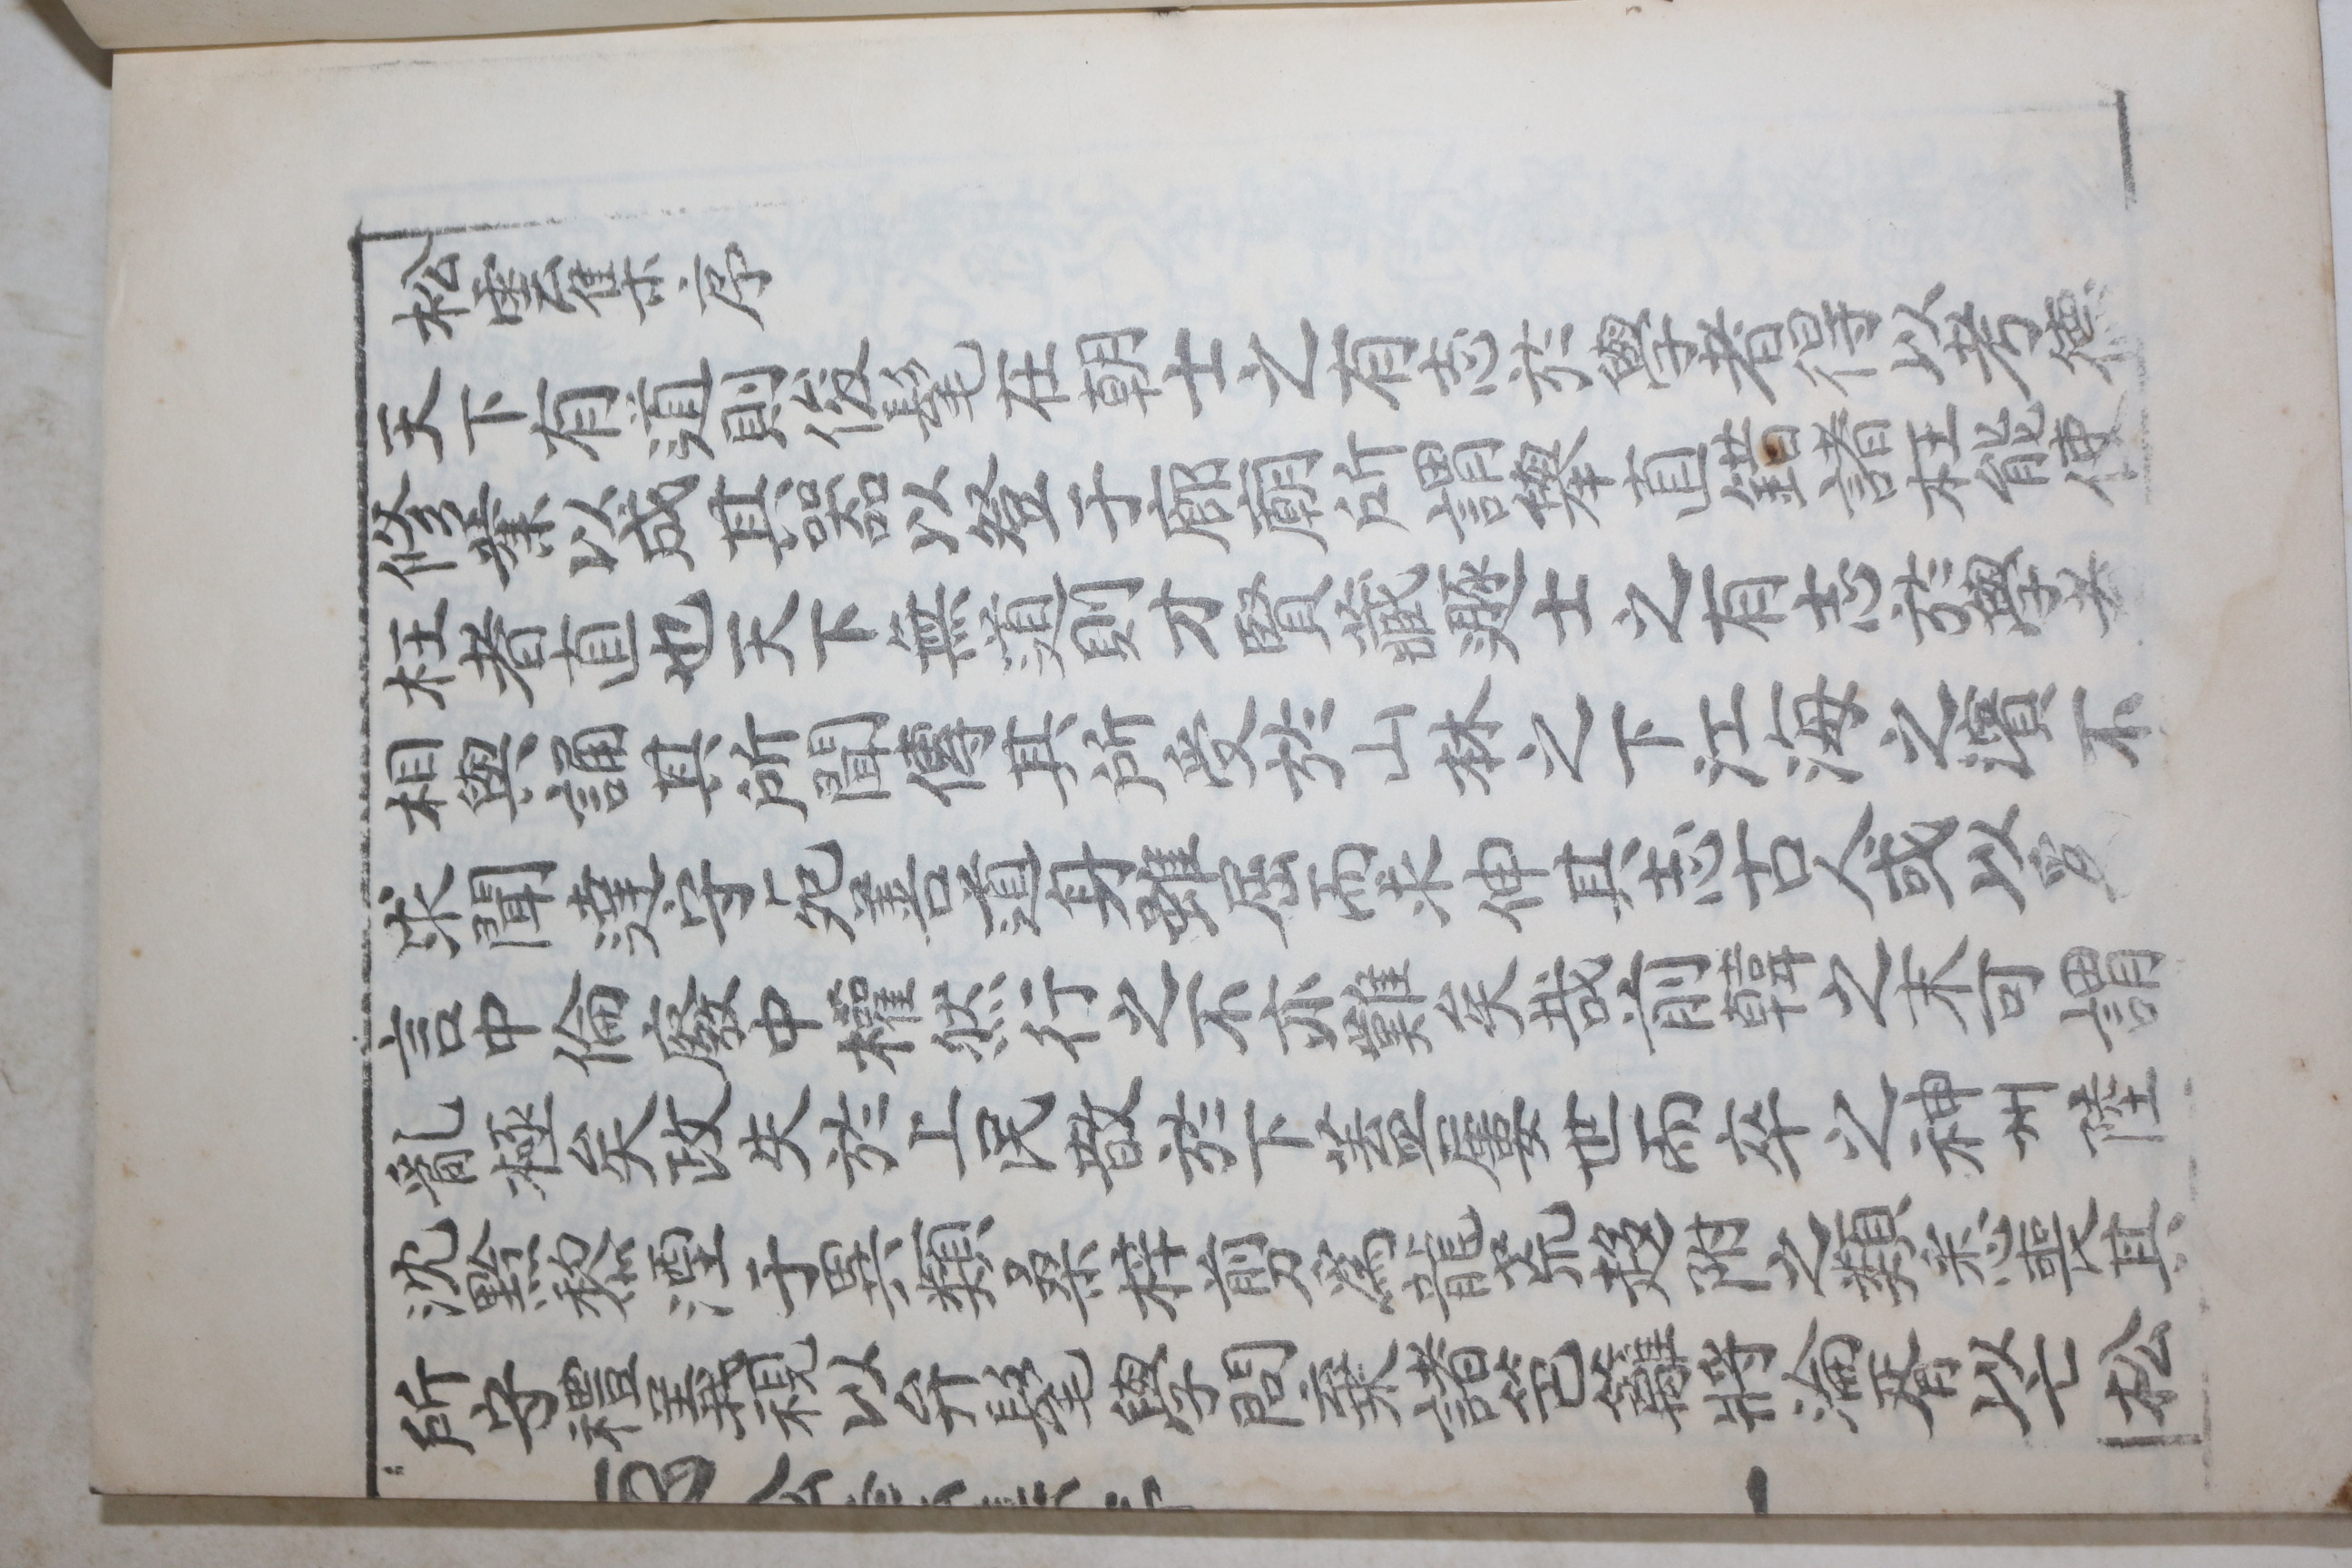 松雲集序
天下有道則俊髦在朝士之有志於學者得以考德
修業以成其器以登于廊廟所謂擧直錯諸枉能使
枉者直也天下無道則才賢藏遯士之有志於學者
相與誦其所聞傳其所受於山林之下江海之濱不
求聞達守死善道身雖屈而求伸其志古人或以爲
言中倫廢中權然行之不亦難矣哉前韓之末可謂
亂極矣政失於上民散於下蓋屢世而卒之神州陸
沈黔黎湮于異類桑梓剪爲龍荒趍附之類悉喪其
所守禮義視以弁髦學問棄諸笆籬將淪胥以亡松